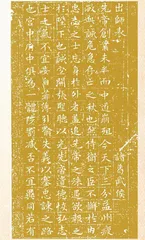 出師表 諸葛武侯
先帝創業未半而中道崩殂今天下三分益州疲
敝此誠危急存亡之秋也然侍衛之臣不懈於內
忠志之士忘身於外者蓋追先帝之殊遇欲報之
於陛下也誠宜開張聖聽以光先帝遺德恢弘志
士之氣不宜妄自菲薄引喻失義以塞忠諫之路
也宮中府中俱為一體陟罰臧否不宜異同若有